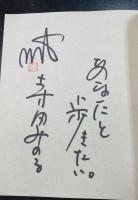 あなたと
歩きたい。
寺田みのる